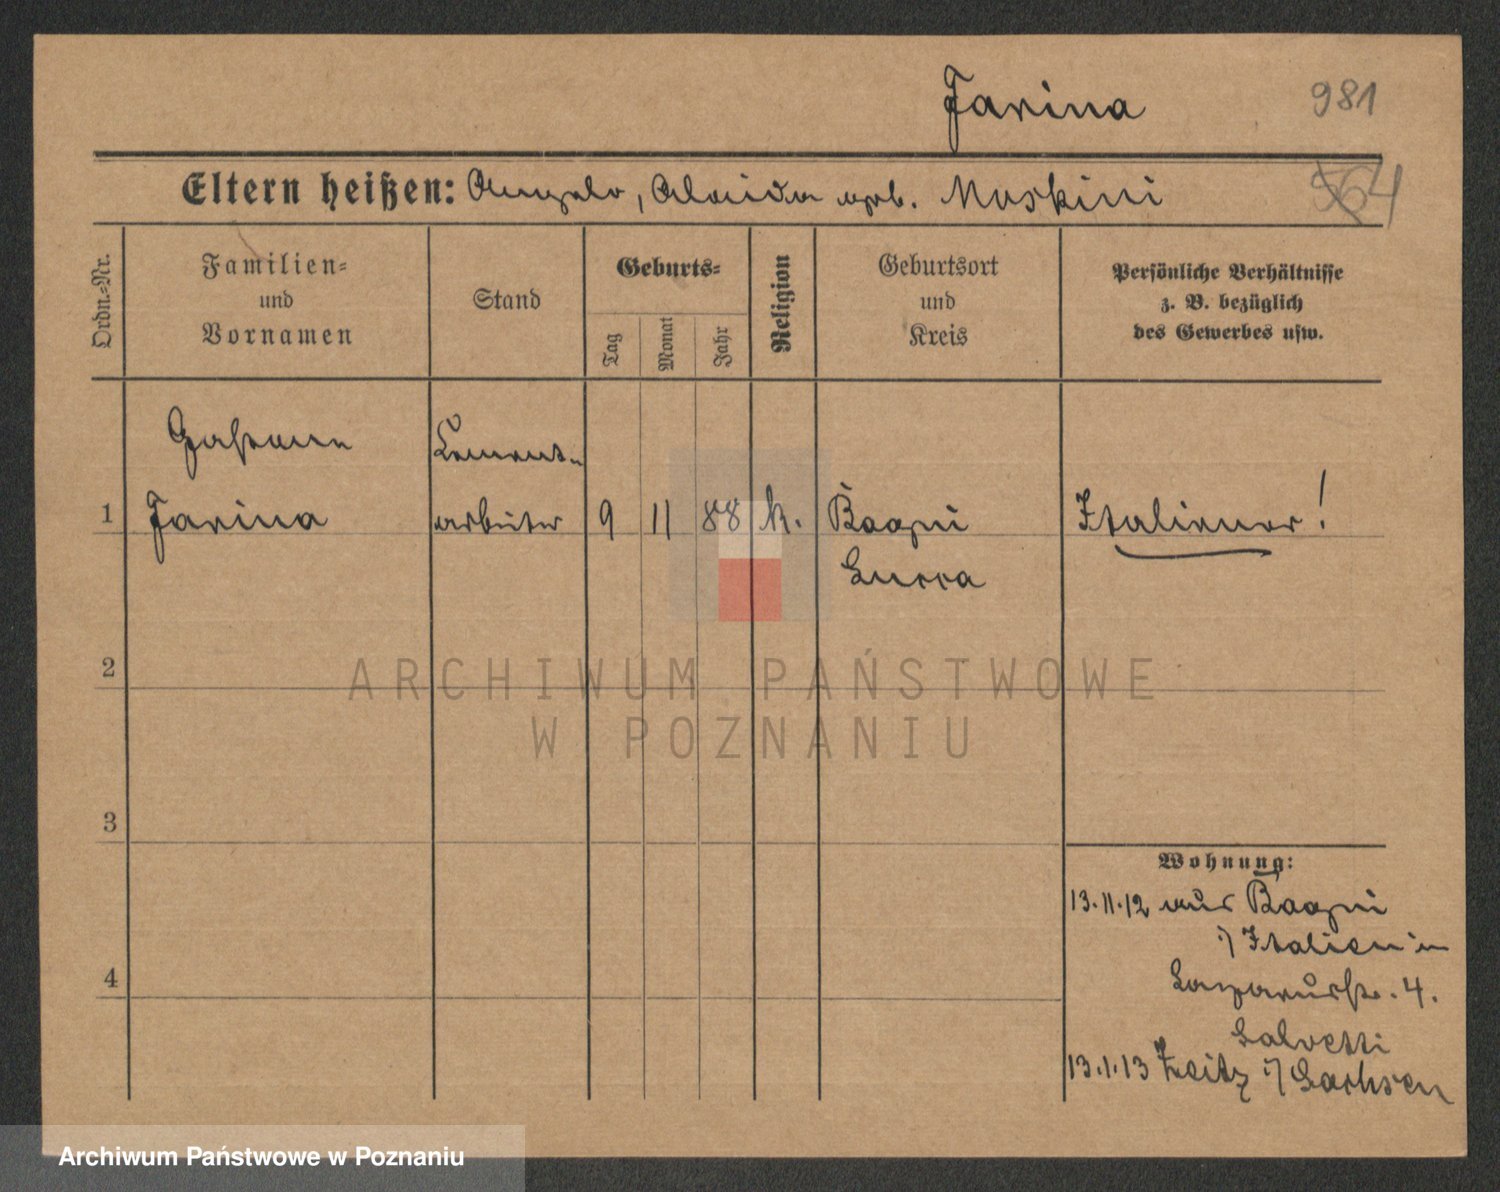 Farina 981
Eltern heißen: Angelo, Alaida geb. Moskini 564
Ordn.-Nr.
Familien-
und
Vornamen
Stand
Geburts-
Tag
Monat
Jahr
Religion
Geburtsort
und
Kreis
Persönliche Verhältnisse
z. B. bezüglich
des Gewerbes usw.
Cement-
1 Farina arbeiter 9 11 88 k. Bagni Italiener!
Lucca
2
ARCHIWUM PAŃSTWOWE
W POZNANIU
3
Wohnung:
13.11.12 aus Bagni
i/ Italien in
4
Lazarusstr. 4.
Salvetti
13.1.13 Zeitz i/ Sachsen
Archiwum Państwowe w Poznaniu